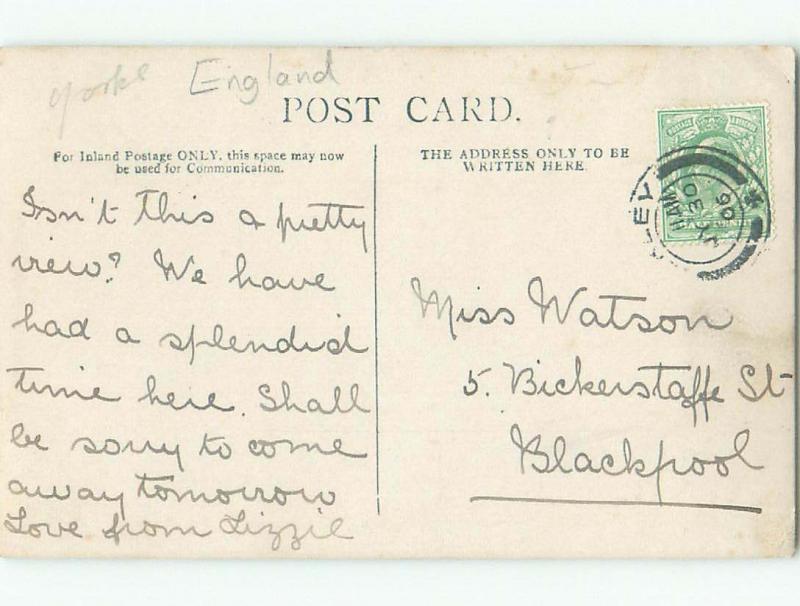 yorks England
POST CARD.
For Inland Postage ONLY, this space may now
be used for Communication.
THE ADDRESS ONLY TO BE
WRITTEN HERE
Isn't this a pretty
view? We have
had a splendid
time here. Shall
be sorry to come
away tomorrow
Love from Lizzie
Miss Watson
5. Bickerstaffe St
Blackpool
LEY
11 AM
JY 30
06
POSTAGE & REVENUE
HALFPENNY